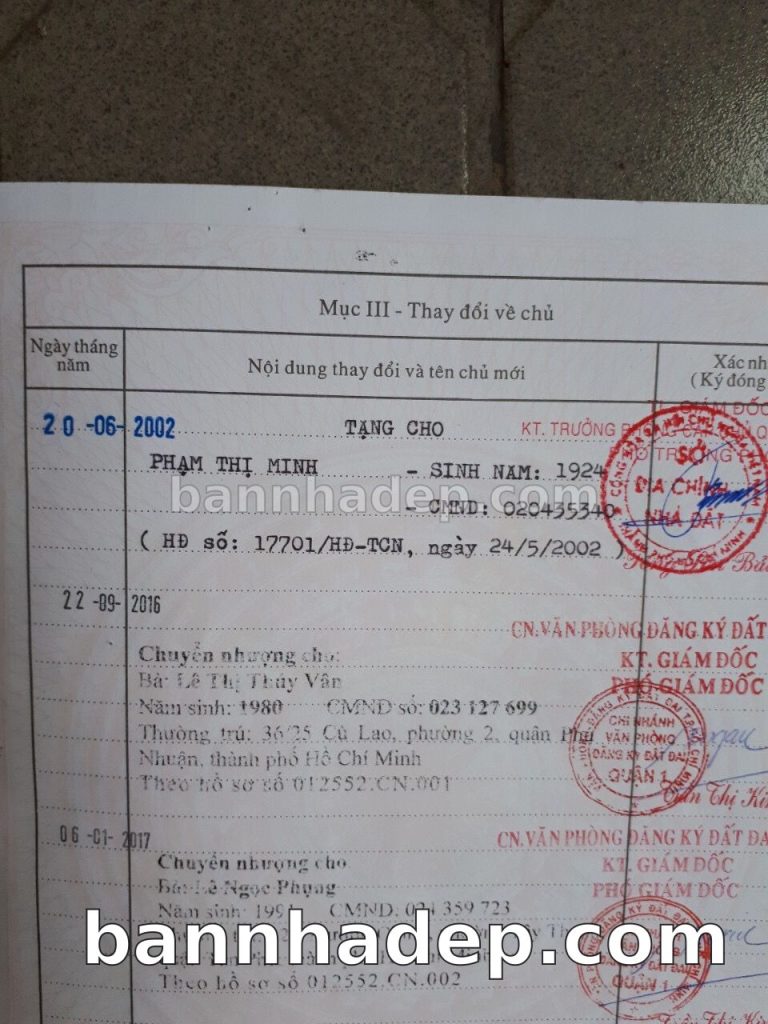 Mục III - Thay đổi về chủ
Ngày tháng năm
Nội dung thay đổi và tên chủ mới
Xác nh
(Ký đóng
20-06-2002
TẶNG CHO
GIÁM ĐỐC
KT. TRƯỞNG
PHẠM THỊ MINH - SINH NĂM: 1924
SỞ
ĐỊA CHÍNH
NHÀ ĐẤT
bannhadep.com
- CMND: 020435340
( HĐ số: 17701/HĐ-TCN, ngày 24/5/2002 )
22-09-2016
CN.VĂN PHÒNG ĐĂNG KÝ ĐẤT
Chuyển nhượng cho:
KT. GIÁM ĐỐC
Bà: Lê Thị Thúy Vân
PHÓ GIÁM ĐỐC
Năm sinh: 1980 CMND số: 023 127 699
CHI NHÁNH
VĂN PHÒNG
ĐĂNG KÝ ĐẤT ĐAI
QUẬN 1
Thường trú: 36/25 Cù Lao, phường 2, quận Phú
Nhuận, thành phố Hồ Chí Minh
Theo hồ sơ số 012552.CN.001
Thị
06-01-2017
CN.VĂN PHÒNG ĐĂNG KÝ ĐẤT ĐA
Chuyển nhượng cho
KT. GIÁM ĐỐC
Bà: Lê Ngọc Phụng
PHÓ GIÁM ĐỐC
Năm sinh: CMND. 024 359 723
bannhadep.com
ĐĂNG KÝ ĐẤT ĐAI
QUẬN 1
Theo hồ sơ số 012552.CN.002